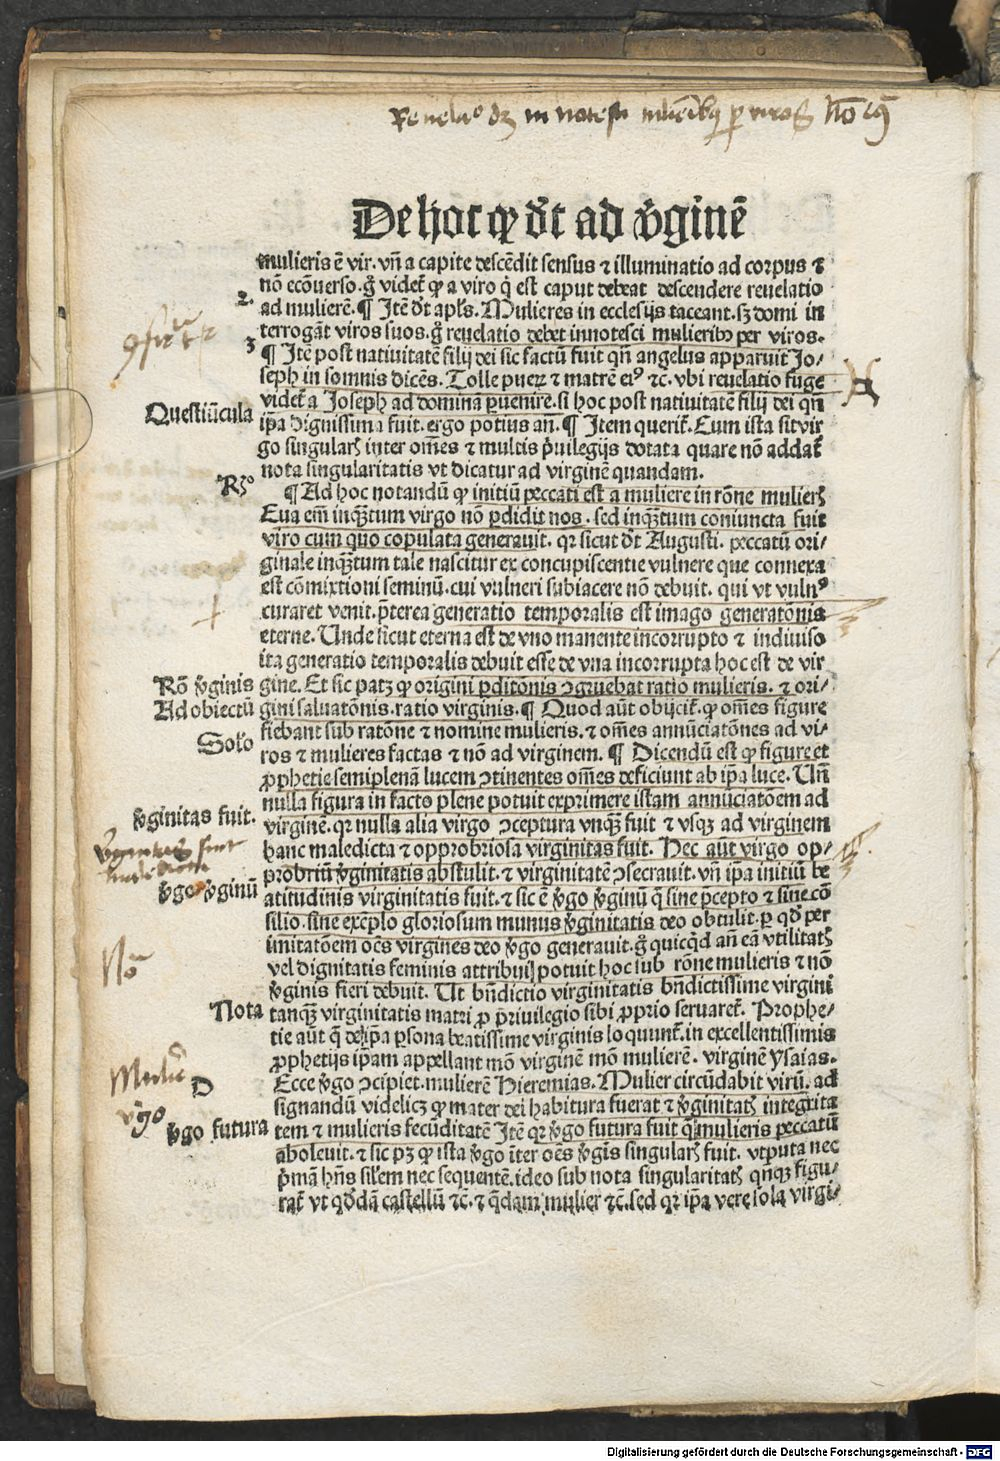 Reuelaᵒ dꝫ in notesci mulieribꝫ ꝑ viros Nō
De hoc ꝙ dr̄t ad v̄ginē
mulieris ē vir. vn̄ a capite descēdit sensus ⁊ illuminatio ad corpus ⁊
nō ecōuerso. gͦ videt᷑ ꝙ a viro q̇ est caput debeat descendere reuelatio
2.
ad mulierē. ¶ Itē dt̄ apl̄s. Mulieres in ecclesijs taceant. sꝫ domi in
terrogāt viros suos. gͦ reuelatio debet innotesci mulieribꝰ per viros.
3
¶ Itē post natiuitatē filij dei sic factū fuit qn̄ angelus apparuit Jo/
seph in somnis dicēs. Tolle pueꝝ ⁊ matrē eiꝰ ⁊c̄. vbi reuelatio fuge
Questiūcula
videt᷑ a Joseph ad dominā ꝑuenire. si hoc post natiuitatē filij dei qn̄
ip̄a dignissima fuit. ergo potius an̄. ¶ Item querit᷑. Cum ista sit vir
go singularꝭ inter om̄es ⁊ multis p̄uilegijs dotata quare nō addat᷑
nota singularitatis vt dicatur ad virginē quandam.
Rꝫᵒ
¶ Ad hoc notandū ꝙ initiū peccati est a muliere in rōne mulierꝭ
Eua em̄ inqꝫtum virgo nō ꝑdidit nos. sed inqꝫtum coniuncta fuit
viro cum quo copulata generauit. qꝛ sicut dt̄ Augusti. peccatū ori/
ginale inqꝫtum tale nascitur ex concupiscentie vulnere que connexa
est cōmixtioni seminū. cui vulneri subiacere nō debuit. qui vt vulnꝰ
curaret venit. p̄terea generatio temporalis est imago generatōnis
eterne. Unde sicut eterna est de vno manente incorrupto ⁊ indiuiso
ita generatio temporalis debuit esse de vna incorrupta hoc est de vir
Rō v̄ginis
gine. Et sic patꝫ ꝙ origini ꝑditōnis ꝯgruebat ratio mulieris. ⁊ ori/
Ad obiectū
gini saluatōnis. ratio virginis. ¶ Quod aūt obijcit᷑. ꝙ om̄es figure
Solᵒ
fiebant sub ratōne ⁊ nomine mulieris. ⁊ om̄es annūciatōnes ad vi/
ros ⁊ mulieres factas ⁊ nō ad virginem. ¶ Dicendū est ꝙ figure et
ꝓphetie semiplenā lucem ꝯtinentes om̄es deficiunt ab ip̄a luce. Un̄
nulla figura in facto plene potuit exprimere istam annūciatōem ad
v̄ginitas fuit.
virginē. qꝛ nulla alia virgo ꝯceptura vnqꝫ fuit ⁊ vsqꝫ ad virginem
v̄ginitas fuit
maledicta
hanc maledicta ⁊ opprobriosa virginitas fuit. Hec aūt virgo op/
probriū v̄ginitatis abstulit. ⁊ virginitatē ꝯsecrauit. vn̄ ip̄a initiū be
v̄go v̄ginū
atitudinis virginitatis fuit. ⁊ sic ē v̄go v̄ginū q̄ sine p̄cepto ⁊ sine cō
silio. sine exēplo gloriosum munus v̄ginitatis deo obtulit. ꝑ qd̄ per
imitatōem oēs virgines deo v̄go generauit. gͦ quicqͥd an̄ eā vtilitatꝭ
Nō
vel dignitatis feminis attribuij potuit hoc sub rōne mulieris ⁊ nō
v̄ginis fieri debuit. Ut bn̄dictio virginitatis bn̄dictissime virgini
Nota
tanqꝫ virginitatis matri ꝓ p̄riuilegio sibi ꝓprio seruaret᷑. Prophe/
tie aūt q̄ de ip̄a ꝑsona beatissime virginis loquunt᷑. in excellentissimis
ꝓphetijs ip̄am appellant mō virginē mō mulierē. virginē Ysaias.
Mulier
D
Ecce v̄go ꝯcipiet. mulierē Hieremias. Mulier circūdabit virū. ad
v̄go
signandū videlicꝫ ꝙ mater dei habitura fuerat ⁊ v̄ginitatꝭ integrita
v̄go futura
tem ⁊ mulieris fecūditatē Itē qꝛ v̄go futura fuit q̄ mulieris peccatū
aboleuit. ⁊ sic pꝫ ꝙ ista v̄go īter oēs v̄gīs singularꝭ fuit. vtputa nec
p̄mā hn̄s sil̄em nec sequentē. ideo sub nota singularitatꝭ qn̄qꝫ figu/
rat᷑ vt qd̄dā castellū ⁊c̄. ⁊ q̄dam mulier ⁊c̄. sed qꝛ ip̄a vere sola virgi/
Digitalisierung gefördert durch die Deutsche Forschungsgemeinschaft - DFG